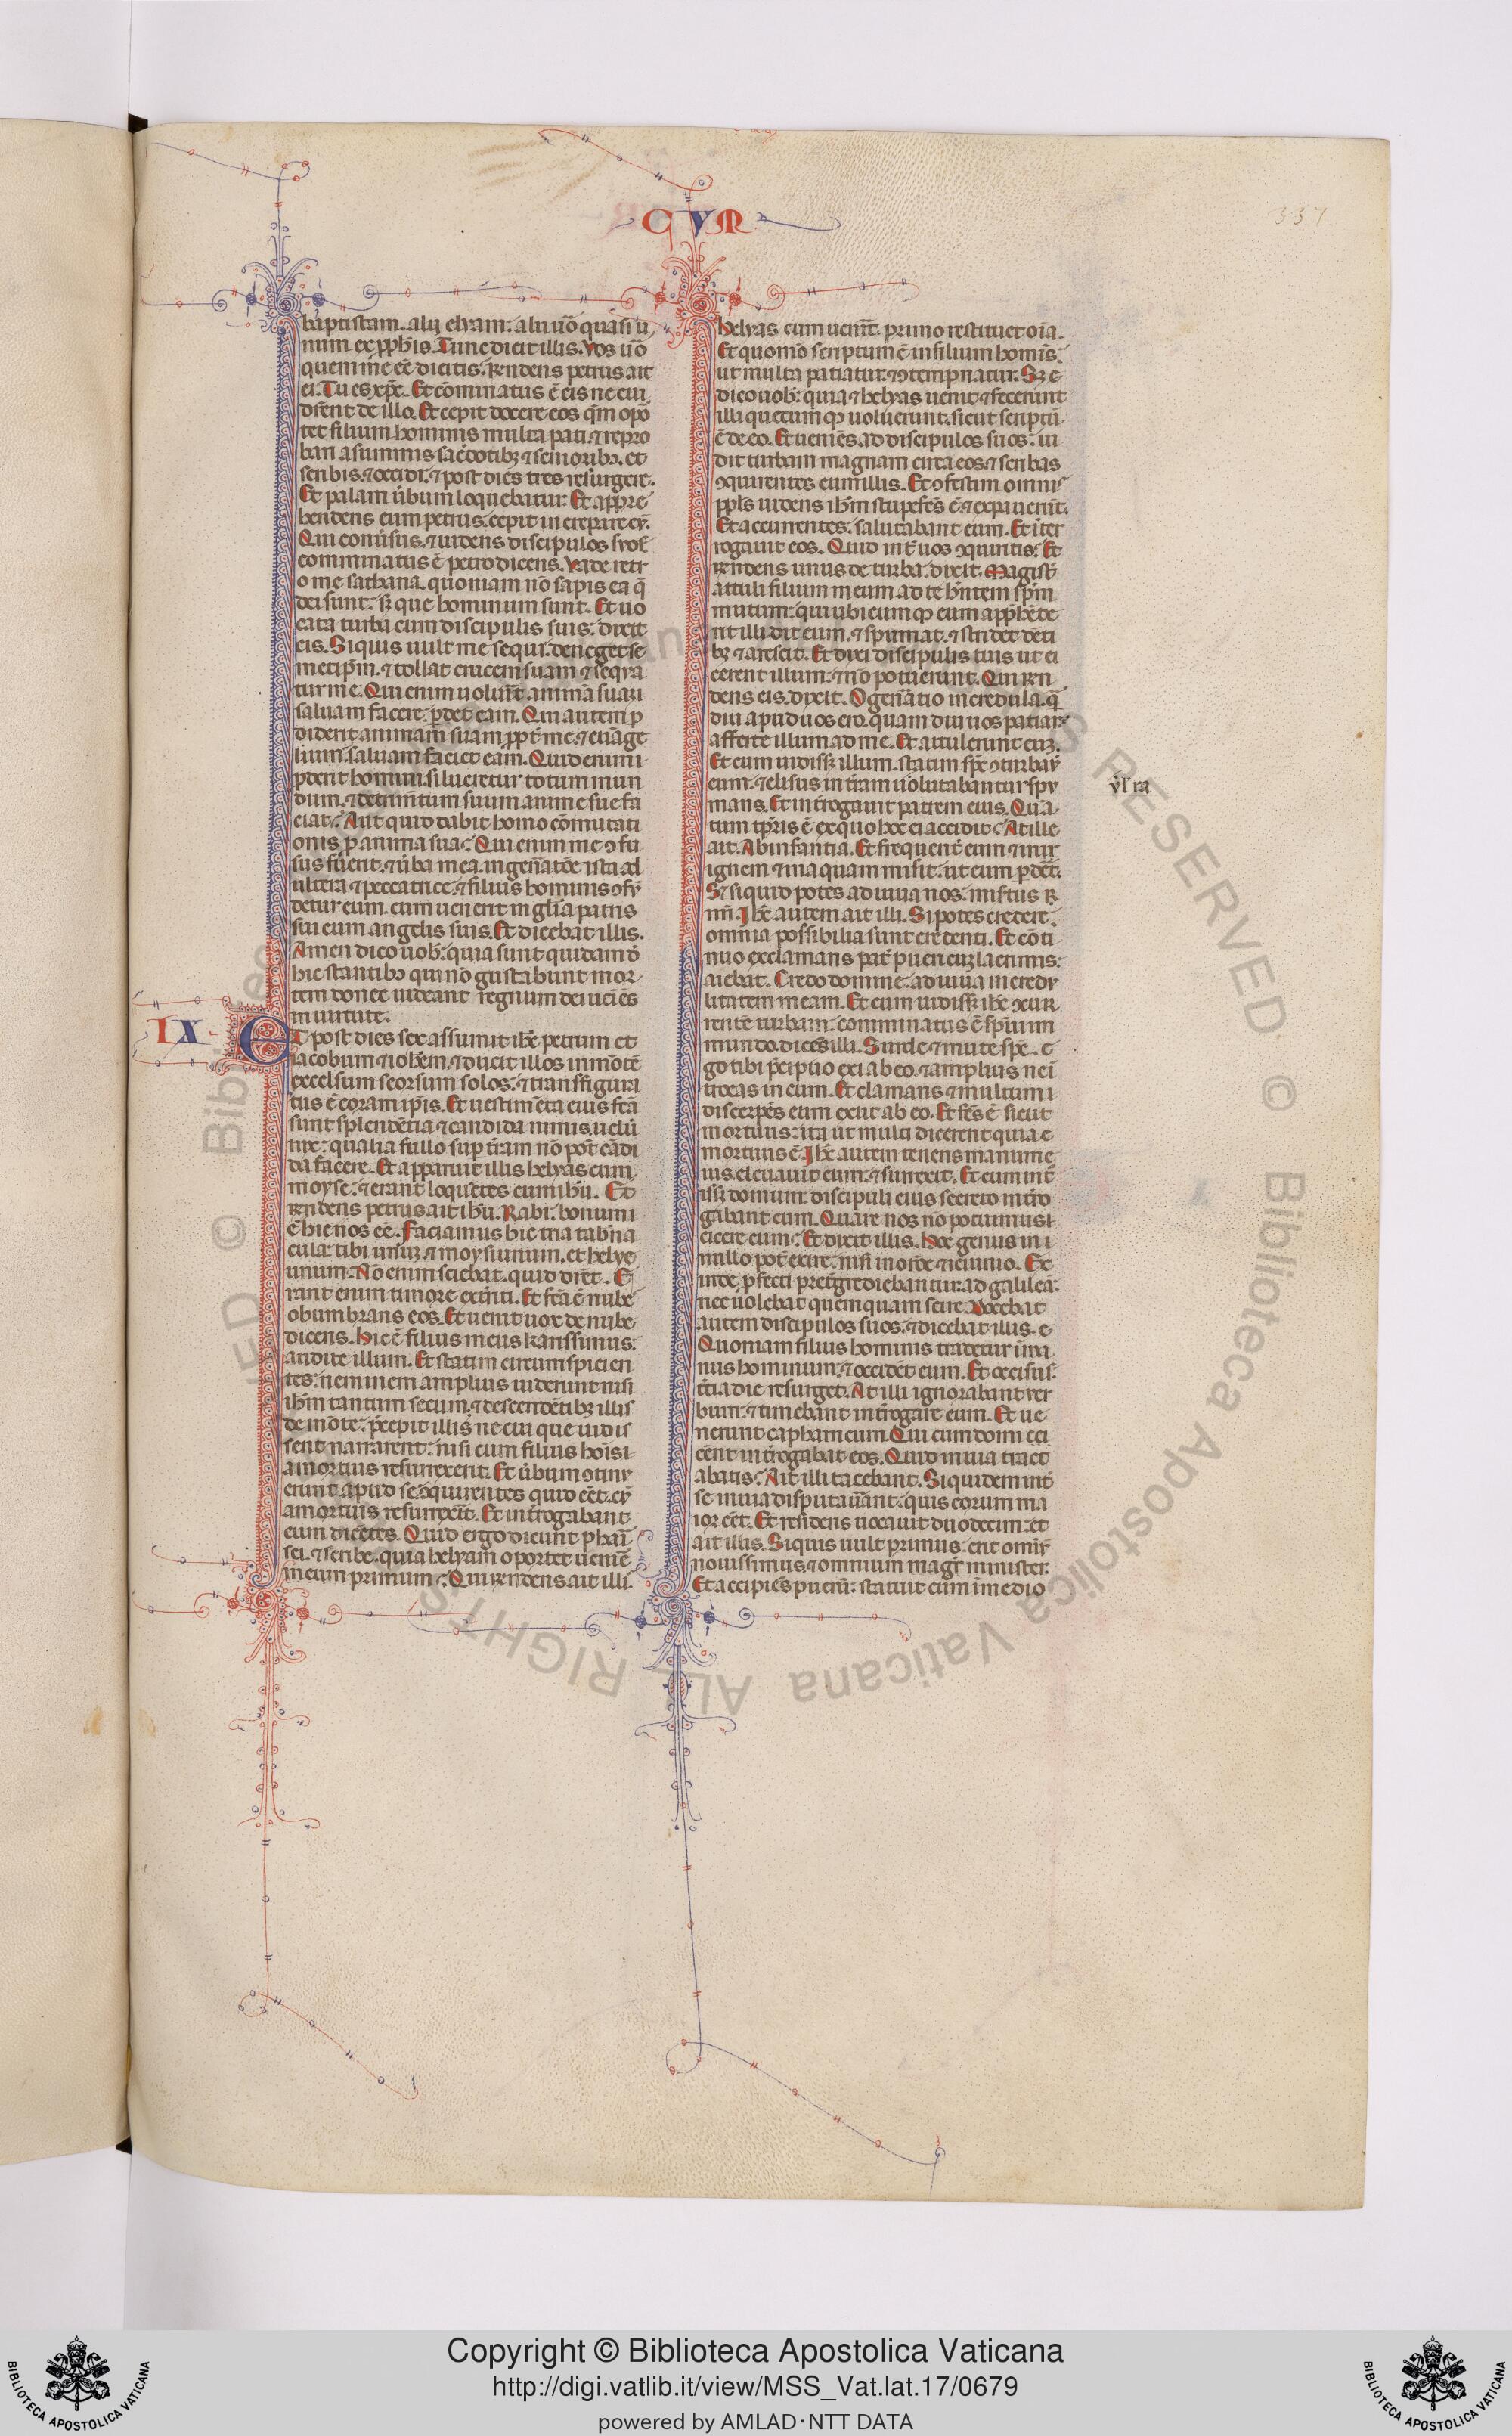 CVM
337
baptistam. alij elyam. alij ũo quasi u
num ex ꝓph̃is. Tunc dicit illis. Vos ũo
quem me eẽ dicitis. R̃ndens petrus ait
ei. Tu es xp̃c. Et cõminatus ẽ eis ne cui
dicẽnt de illo. Et cepit docere eos qm̃ opõ
tet filium hominis multa pati. ⁊ repro
bari a summis sac̃dotibꝫ ⁊ senioribꝫ. et
scribis. ⁊ occidi. ⁊ post dies tres resurgere.
Et palam ũbum loquebatur. Et appre
hendens eum petrus. cepit increpare eũ.
Qui conũsus. ⁊ uidens discipulos suos.
comminatus ẽ petro dicens. Vade retr
o me sathana. quoniam nõ sapis ea q̃
dei sunt. sꝫ que hominum sunt. Et uo
cata turba cum discipulis suis. dixit
eis. Si quis uult me sequi. deneget se
metip̃m. ⁊ tollat crucem suam ⁊ seqra
tur me. Qui enim uolũit animã suam
saluam facere. ꝑdet eam. Qui autem ꝑ
diderit animam suam ꝓpt̃ me. ⁊ euãge
lium. saluam faciet eam. Quid enim
ꝓderit homini. si lucretur totum mun
dum. ⁊ detrim̃tum suum anime sue fa
ciat. Aut quid dabit homo cõmutati
onis ꝓ anima sua. Qui enim me ↄfu
sus fũerit. ⁊ ũba mea. in geñatõe ista ad
ultera ⁊ peccatrice. ⁊ filius hominis ↄfũ
detur eum. cum uenerit in gl̃ia patris
sui cum angelis suis. Et dicebat illis.
Amen dico uob̃. quia sunt quidam ð
hic stantibꝫ qui nõ gustabunt mor
tem donec uideant regnum dei ueniẽs
in uirtute.
IX
ET post dies sex assumit ih̃c petrum et
iacobum ⁊ ioh̃em. ⁊ ducit illos in mõtẽ
excelsum seorsum solos. ⁊ transfigura
tus ẽ coram ip̃is. Et uestimẽta eius fc̃a
sunt splendẽtia ⁊ candida nimis. uelũ
nix. qualia fullo sup t̃ram nõ pot̃ cãdi
da facere. Et apparuit illis helyas cum
moyse. ⁊ erant loquẽtes cum ih̃u. Et
r̃ndens petrus ait ih̃u. Rabi. bonum
ẽ hic nos eẽ. Faciamus hic tria tab̃na
cula. tibi unũ. ⁊ moysi unum. et helye
unum. Nõ enim sciebat quid dic̃et. E
rant enim timore ext̃riti. Et fc̃a ẽ nubes
obumbrans eos. Et uenit uox de nube
dicens. Hic ẽ filius meus karissimus.
audite illum. Et statim circumspicien
tes. neminem amplius uiderunt nisi
ih̃m tantum secum. ⁊ descendẽtibꝫ illis
de mõte. p̃cepit illis ne cui que uidis
sent narrarent. nisi cum filius hoĩs
a mortuis resurrexerit. Et ũbum ↄtinu
erunt apud se. ↄquirentes quid eẽt. cũ
a mortuis resurrexẽit. Et int̃rogabant
eum dicẽtes. Quid ergo dicunt pharĩ
sei. ⁊ scribe. quia helyam oportet uenire
in eum primum. Qui r̃ndens ait illi.
helyas cum ueñit. primo restituet oĩa.
Et quomõ scriptum ẽ in filium homĩs.
ut multa patiatur. ⁊ ↄtempnatur. Sꝫ ẽ
dico uob̃. quia ⁊ helyas uenit. ⁊ fecerunt
illi quecumqꝫ uoluerunt. sicut scriptũ
ẽ de eo. Et ueniẽs ad discipulos suos. ui
dit turbam magnam circa eos. ⁊ scribas
ↄquirentes cum illis. Et ↄfestim omnis
ppl̃s uidens ih̃m stupefc̃s ẽ. ⁊ expauerũt.
Et accurrentes. salutabant eum. Et int̃er
rogauit eos. Quid int̃ uos ↄquiritis. Et
r̃ndens unus de turba. dixit. Magist̃
attuli filium meum ad te h̃ntem sp̃m
mutum. qui ubicumqꝫ eum appr̃hẽde
rit illidit eum. ⁊ spumat. ⁊ stridet dẽti
bꝫ ⁊ arescit. Et dixi discipulis tuis ut ei
cerent illum. ⁊ nõ potuerunt. Qui r̃n
dens eis. dixit. O geñatio incredula. q̃
diu apud uos ero. quam diu uos patiar.
afferte illum ad me. Et attulerunt eum.
Et cum uidissꝫ illum. statim sp̃c ↄturbaũ
eum. ⁊ elisus in t̃ram uolutabantur spu
ũl ra
mans. Et int̃rogauit patrem eius. Quã
tum tp̃ris ẽ ex quo hoc ei accidit. At ille
ait. Ab infantia. Et frequent̃ eum ⁊ in
ignem ⁊ in aquam misit. ut eum ꝑdẽt.
Sꝫ si quid potes adiuua nos. misertus
nr̃i. Ih̃c autem ait illi. Si potes credere.
omnia possibilia sunt credenti. Et cõti
nuo exclamans pat̃ pueri cum lacrimis.
aiebat. Credo domine. adiuua incredu
litatem meam. Et cum uidissꝫ ih̃c ↄcur
rentẽ turbam. comminatus ẽ sp̃ui im
mundo. dicẽs illi. Surde ⁊ mute sp̃c. e
go tibi p̃cipio exi ab eo. ⁊ amplius ne ĩ
troeas in eum. Et clamans ⁊ multum
discerpẽs eum exiit ab eo. Et fc̃s ẽ sicut
mortuus. ita ut multi dicerent quia
mortuus ẽ. Ih̃c autem tenens manum e
ius. eleuauit eum. ⁊ surrexit. Et cum int̃
issꝫ domum. discipuli eius secreto int̃ro
gabant eum. Quare nos nõ potuimus
eicere eum. Et dixit illis. Hoc genus in
nullo pot̃ exire. nisi in or̃õne ⁊ ieiunio. Et
inde ꝓfecti pret̃grediebantur. ad galileã.
nec uolebat quemquam scire. Docebat
autem discipulos suos. ⁊ dicebat illis.
Quoniam filius hominis tradetur ĩ ma
nus hominum. ⁊ occidẽt eum. Et occisus.
t̃cia die resurget. At illi ignorabant uer
bum. ⁊ timebant int̃rogare eum. Et ue
nerunt capharnaum. Qui cum domi eẽ
cẽnt int̃rogabat eos. Quid in uia tract
abatis. At illi tacebant. Siquidem int̃
se in uia disputauãnt. quis eorum ma
ior eẽt. Et residens uocauit duodecim. et
ait illis. Si quis uult primus. erit omĩu
nouissimus. ⁊ omnium magr̃ minister.
Et accipiẽs puerũ. statuit eum in medio
Copyright © Biblioteca Apostolica Vaticana
http://digi.vatlib.it/view/MSS_Vat.lat.17/0679
powered by AMLAD·NTT DATA
BIBLIOTECA APOSTOLICA VATICANA
BIBLIOTECA APOSTOLICA VATICANA